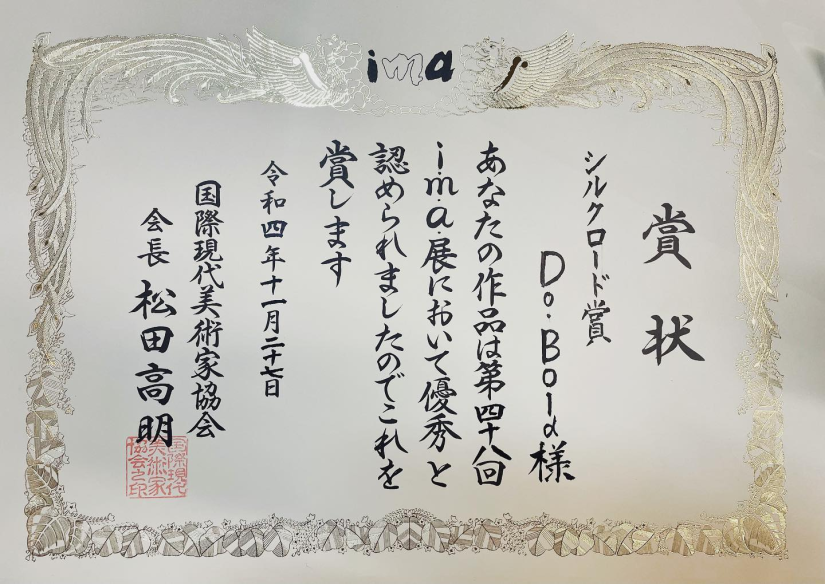 ima
賞状
シルクロード賞
Do.Bold様
あなたの作品は第四十八回
i.m.a.展において優秀と
認められましたのでこれを
賞します
令和四年十一月二十七日
国際現代美術家協会
会長 松田高明
国際現代
美術家
協会之印